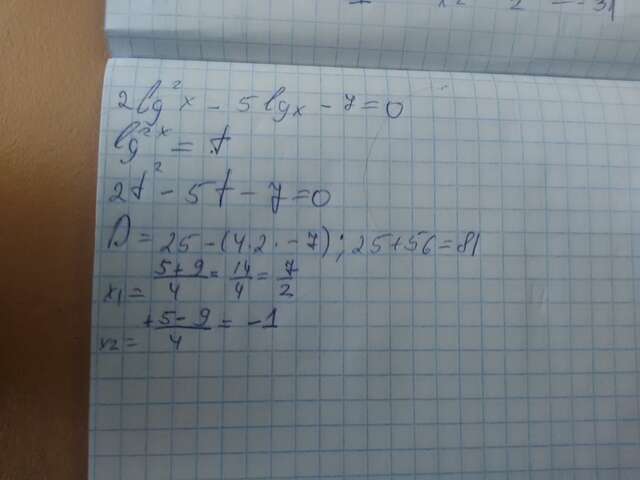 x2 2 - 31
2lg²x - 5lgx - 7 = 0
lg²x = t
2t² - 5t - 7 = 0
D = 25 - (4·2·-7); 25 + 56 = 81
x1 = (5+9)/4 = 14/4 = 7/2
x2 = (+5-9)/4 = -1